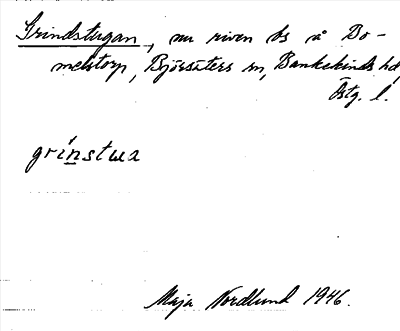 Grindstugan, nu riven bs å Bo-
melstorp, Björsäters sn, Bankekinds hd,
Östg. l.
grinstwa
Maja Nordlund 1946.